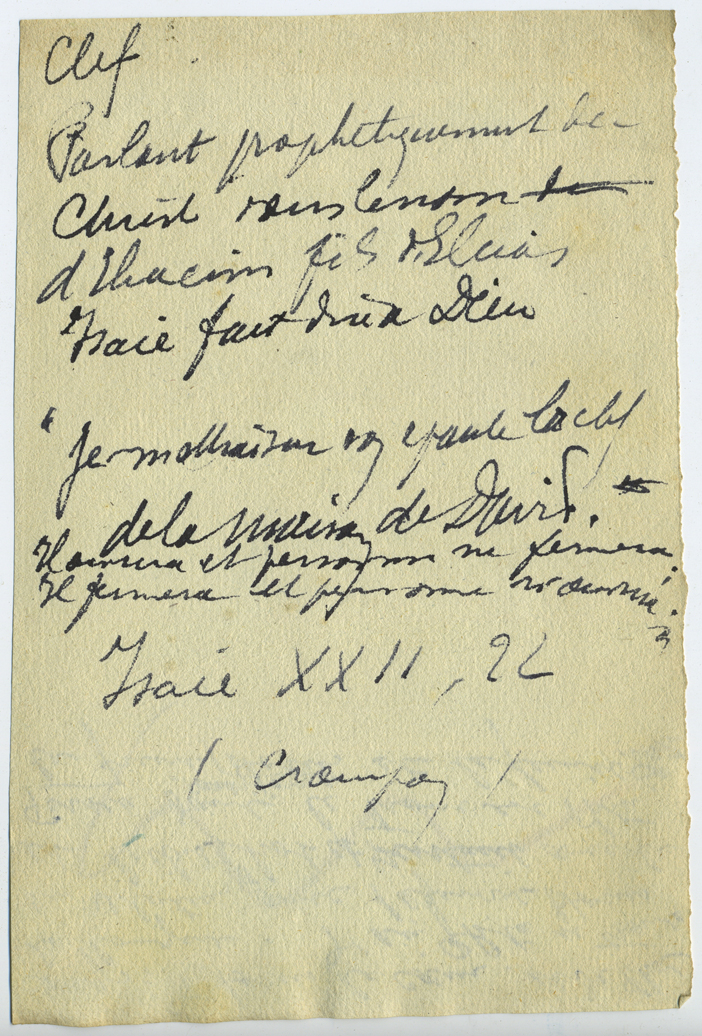 Clef
Parlant prophétiquement de
Christ sous le nom de
d'Eliacim fils d'Elcias
Isaie fait dire à Dieu
"Je mettrai sur son épaule la clef
de la maison de David.
Il ouvrira et personne ne fermera.
Il fermera et personne n'ouvrira."
Isaie XXII, 22
( Crampon )